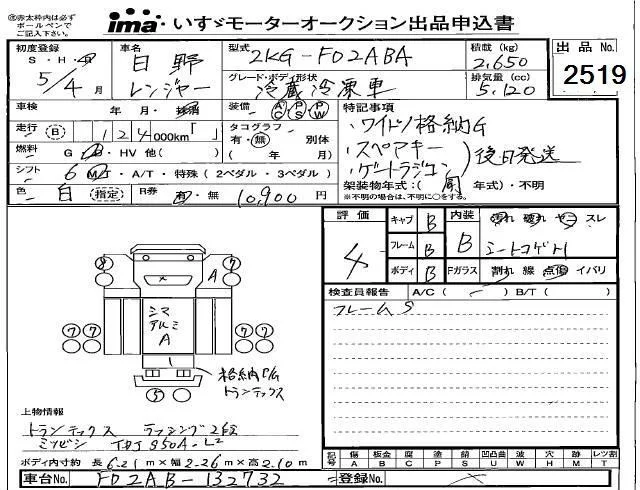 ※赤太枠内は必ずボールペンでご記入下さい。
ima いすゞモーターオークション出品申込書
初度登録 S・H・R 5/4月
車名 日野 レンジャー
型式 2KG-FD2ABA
積載(kg) 2,650
出品No. 2519
グレード・ボディ形状 冷蔵冷凍車
排気量(cc) 5,120
車検 年 月・抹消
装備 AC PS PW
特記事項
走行 B 124000km「 」
タコグラフ 有・無 別体 ( 年 月)
・ワイド/格納G
・スペアキー
・ゲートラジコン
後日発送
燃料 G・D・HV 他( )
シフト 6 MT・A/T・特殊(2ペダル・3ペダル)
架装物年式:(同 年式)・不明
※不明の場合は、不明に○をする。
色 白 (指定)
R券 有・無 10,900円
評価 4
キャブ B
内装 B 汚れ 破れ ヤニ スレ
フレーム B
シートコゲ
ボディ B
Fガラス 割れ 線 点傷 イバリ
検査員報告 A/C( ー ) B/T( )
フレームS
8 7
A A
シマ アルミ A
7 7 7 7
1
格納P/G
トランテックス
5
上物情報
トランテックス ラッシング2段
ミツビシ TDJS50A-L2
ボディ内寸約 長6.21m×幅2.26m×高2.10m
記号 傷A 板金B 腐C 塗P 錆S 凹凸曲U 波W 穴H 跡M レツ割T
車台No. FD2AB-132732
登録No.